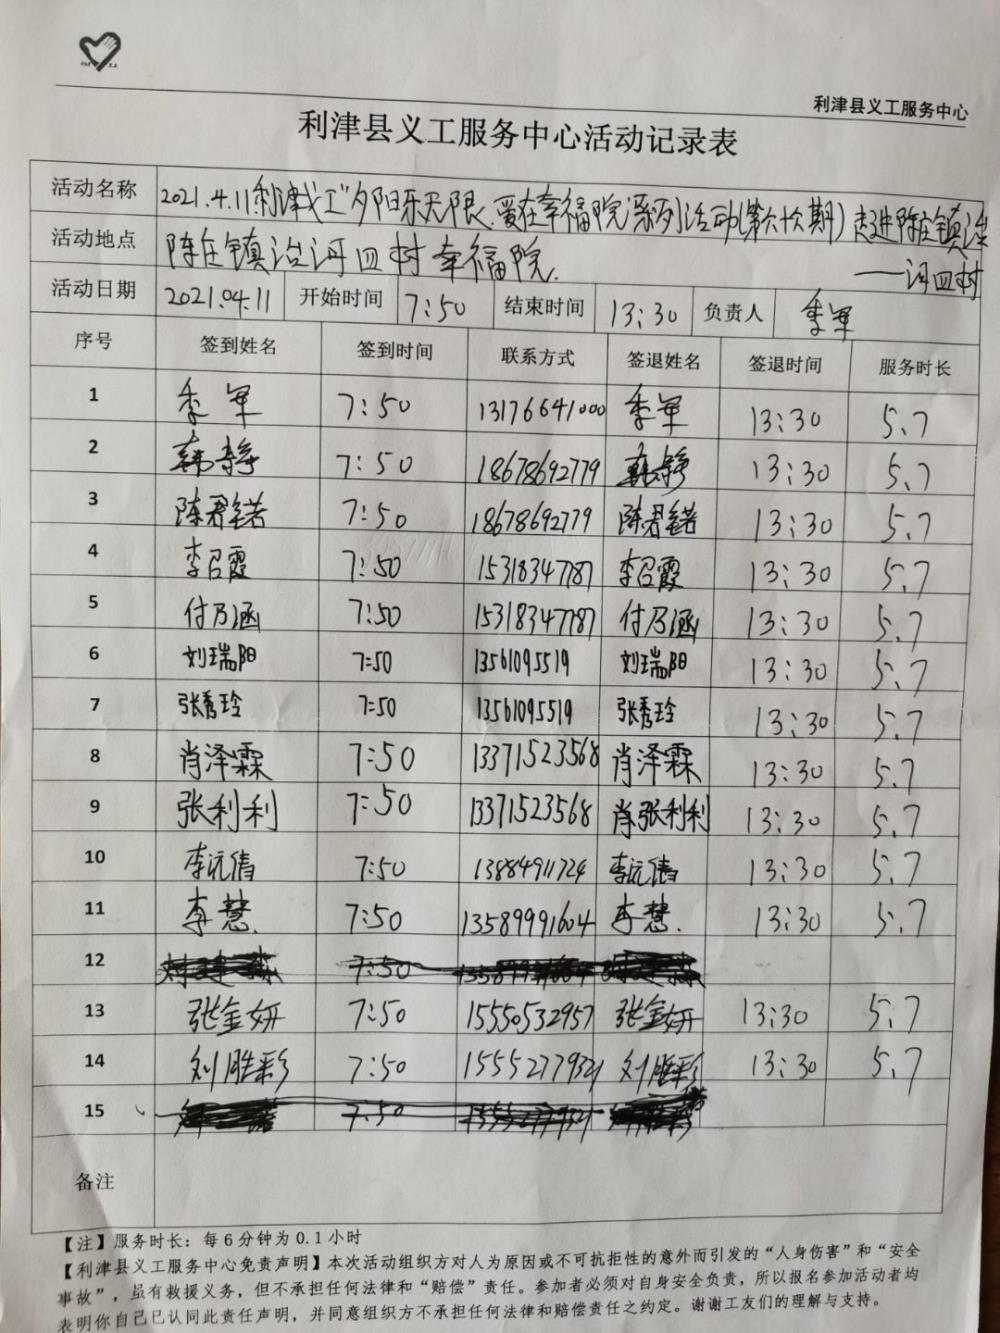 利津县义工服务中心
利津县义工服务中心活动记录表
活动名称 2021.4.11利津义工"夕阳乐无限、爱在幸福院"系列活动(第六十六期)走进陈庄镇治
——河四村
活动地点 陈庄镇治河四村幸福院.
活动日期 2021.04.11 开始时间 7:50 结束时间 13:30 负责人 季军
序号 签到姓名 签到时间 联系方式 签退姓名 签退时间 服务时长
1 季军 7:50 13176641000 季军 13:30 5.7
2 韩静 7:50 18678692779 韩静 13:30 5.7
3 陈君诺 7:50 18678692779 陈君诺 13:30 5.7
4 李召霞 7:50 15318347787 李召霞 13:30 5.7
5 付乃涵 7:50 15318347787 付乃涵 13:30 5.7
6 刘瑞阳 7:50 13561095519 刘瑞阳 13:30 5.7
7 张秀玲 7:50 13561095519 张秀玲 13:30 5.7
8 肖泽霖 7:50 13371523568 肖泽霖 13:30 5.7
9 张利利 7:50 13371523568 肖张利利 13:30 5.7
10 李沅倩 7:50 13884911724 李沅倩 13:30 5.7
11 李慧. 7:50 13589991604 李慧. 13:30 5.7
12 7:50
13 张金妍 7:50 15550532957 张金妍 13:30 5.7
14 刘胜彩 7:50 15552779321 刘胜彩 13:30 5.7
15 7:50
备注
【注】服务时长：每6分钟为0.1小时
【利津县义工服务中心免责声明】本次活动组织方对人为原因或不可抗拒性的意外而引发的“人身伤害”和“安全
事故”，虽有救援义务，但不承担任何法律和“赔偿”责任。参加者必须对自身安全负责，所以报名参加活动者均
表明你自己已认同此责任声明，并同意组织方不承担任何法律和赔偿责任之约定。谢谢工友们的理解与支持。